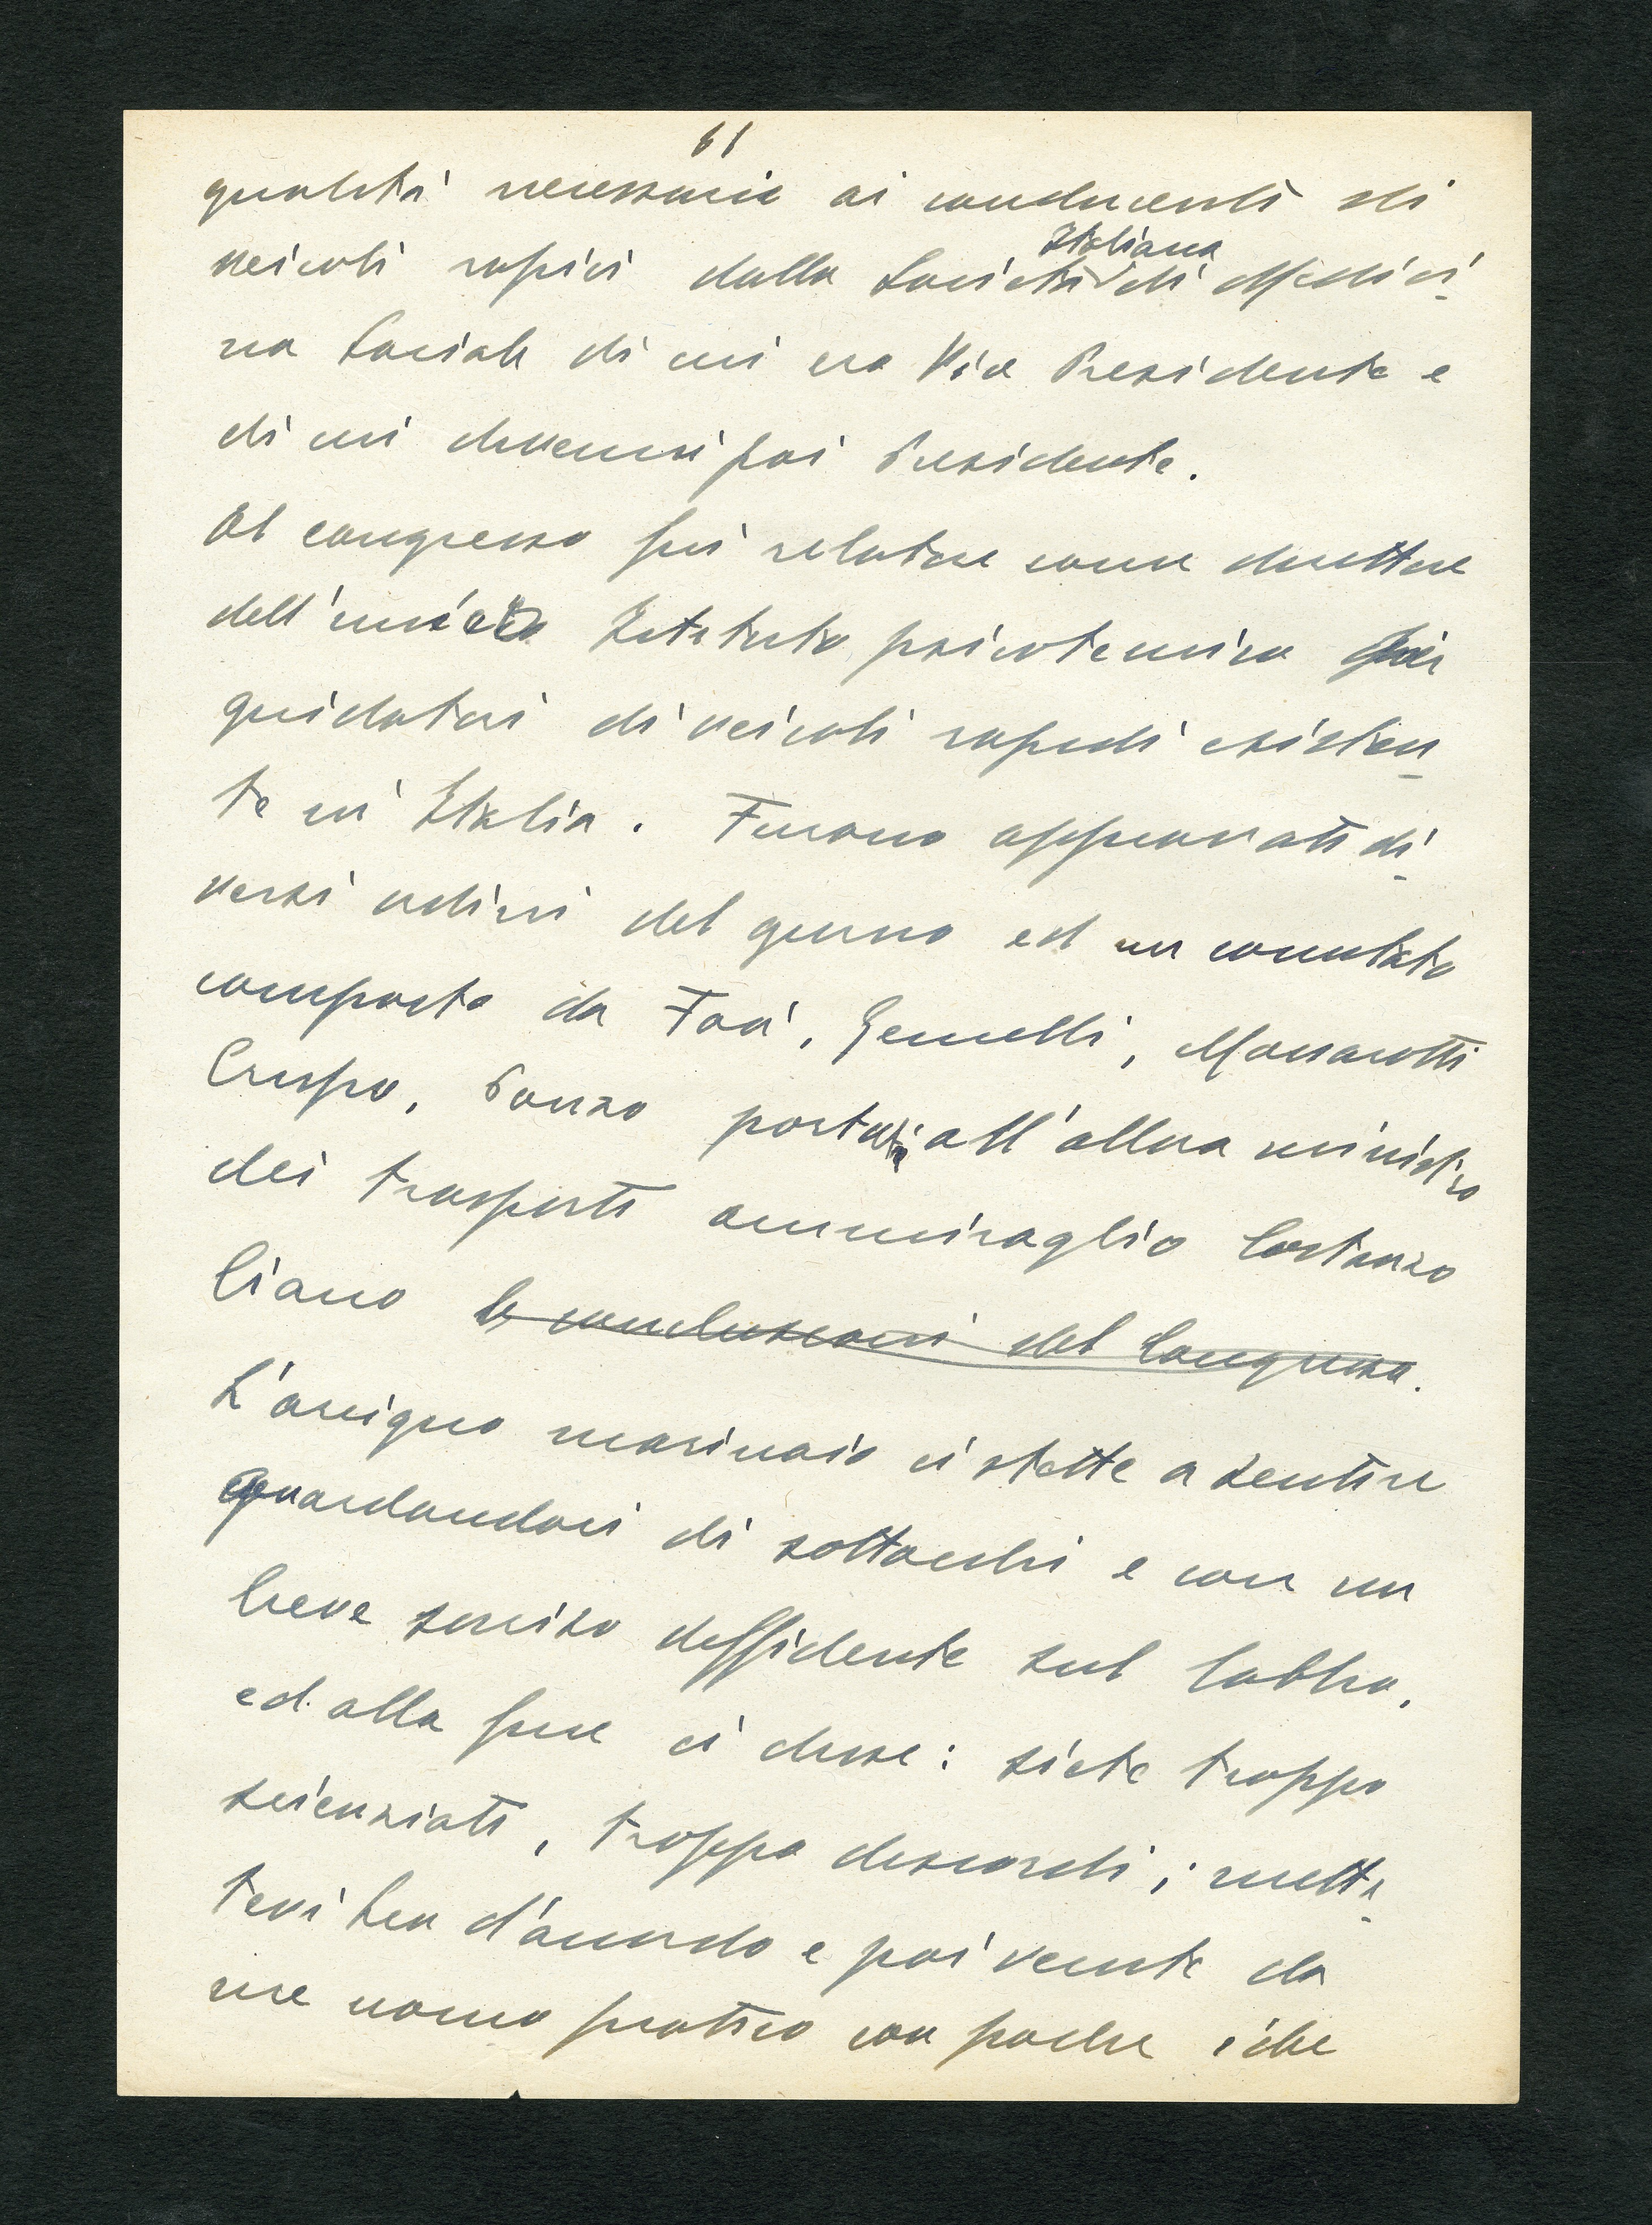 61
qualità necessarie ai conducenti di
veicoli rapidi dalla Società Italiana di Medici-
na Sociale di cui ero Vice Presidente e
di cui devenni poi Presidente.
Al congresso fui relatore come direttore
dell'unico Istituto psicotecnico per
guidatori di veicoli rapidi esisten-
te in Italia. Furono approvati di-
versi ordini del giorno ed un comitato
composto da Foà, Gemelli, Massarotti
Crespo, Ponzo all'allora ministro
dei trasporti ammiraglio Costanzo
Ciano le conclusioni del Congresso.
L'arcigno marinaio ci stette a sentire
guardandoci di sottocchi e con un
breve sorriso diffidente sul labbro,
ed alla fine ci disse: siete troppo
scienziati, troppo discordi; mette-
tevi ben d'accordo e poi venite da
me uomo pratico con poche